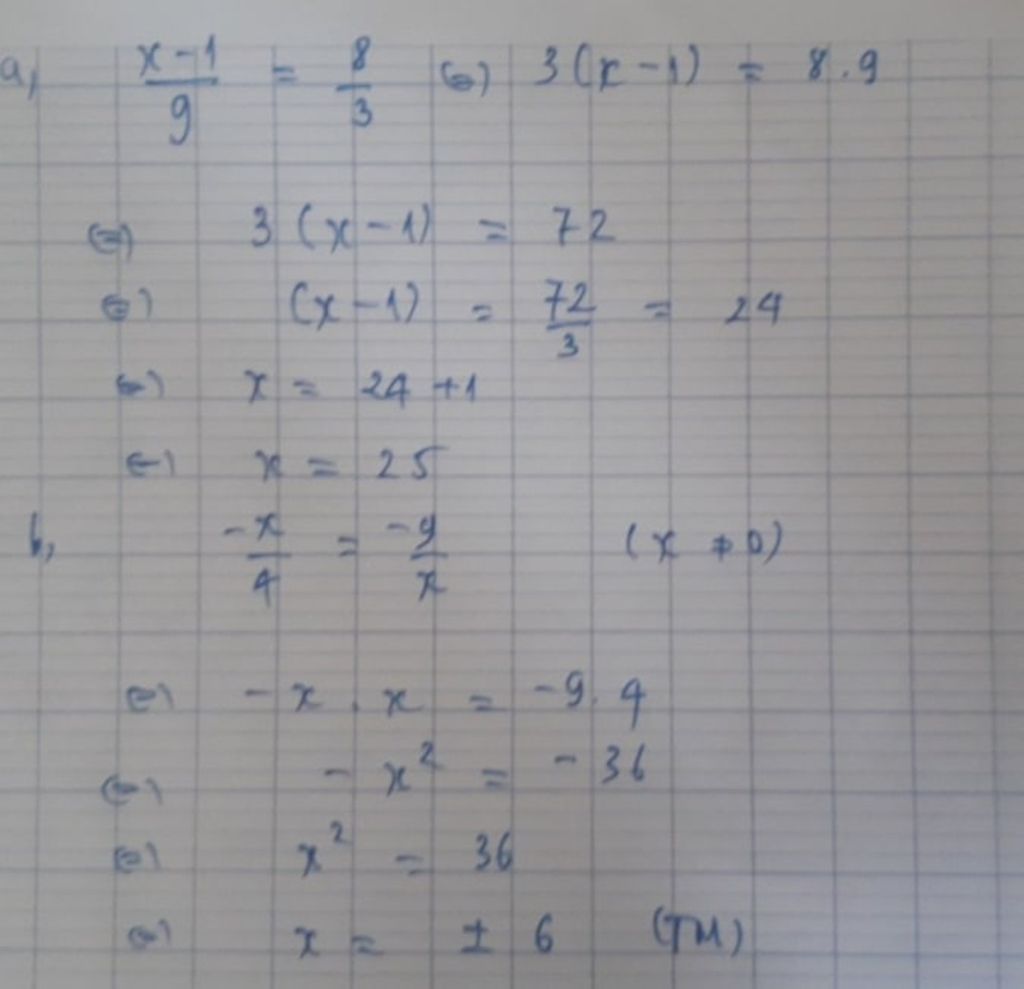 a, x-1/9 = 8/3 ⇔ 3(x-1) = 8.9
⇔ 3(x-1) = 72
⇔ (x-1) = 72/3 = 24
⇔ x = 24+1
⇔ x = 25
b, -x/4 = -9/x (x ≠ 0)
⇔ -x . x = -9.4
⇔ -x² = -36
⇔ x² = 36
⇔ x = ± 6 (TM)